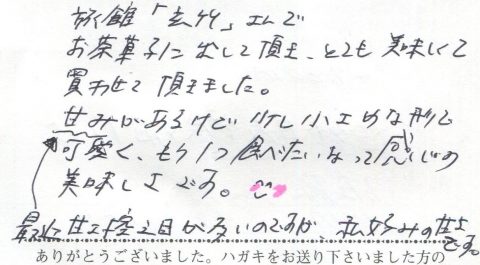 旅館「玄竹」さんで
お茶菓子に出して頂き、とても美味しくて
買わせて頂きました。
甘みがあるけど少し小さめな形で
可愛く、もう1つ食べたいなって感じの
美味しさです。
最近甘さ控え目が多いのですが、私好みの甘さです。
ありがとうございました。ハガキをお送り下さいました方の